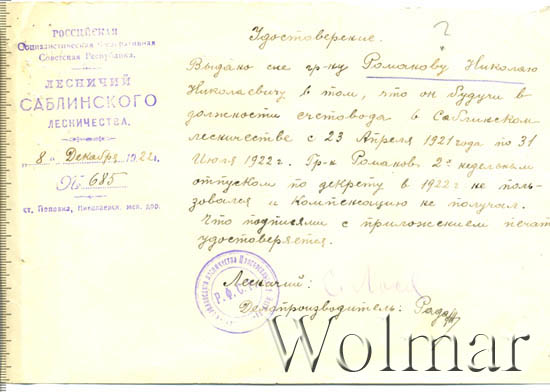 РОССИЙСКАЯ
Социалистическая Федеративная
Советская Республика.
ЛЕСНИЧИЙ
САБЛИНСКОГО
ЛЕСНИЧЕСТВА.
„8" Декабря 1922 г.
№ 685
ст. Поповка, Николаевск. жел. дор.
?
Удостоверение.
Выдано сие гр-ну Романову Николаю
Николаевичу в том, что он будучи в
должности счетовода в Саблинском
лесничестве с 23 Апреля 1921 года по 31
Июля 1922 г. Гр-н Романов 2х недельным
отпуском по декрету в 1922 г не поль-
зовался и компенсацию не получал.
Что подписями с приложением печати
удостоверяется.
Лесничий:
Делопроизводитель:
Р.Ф.С.
Wolmar